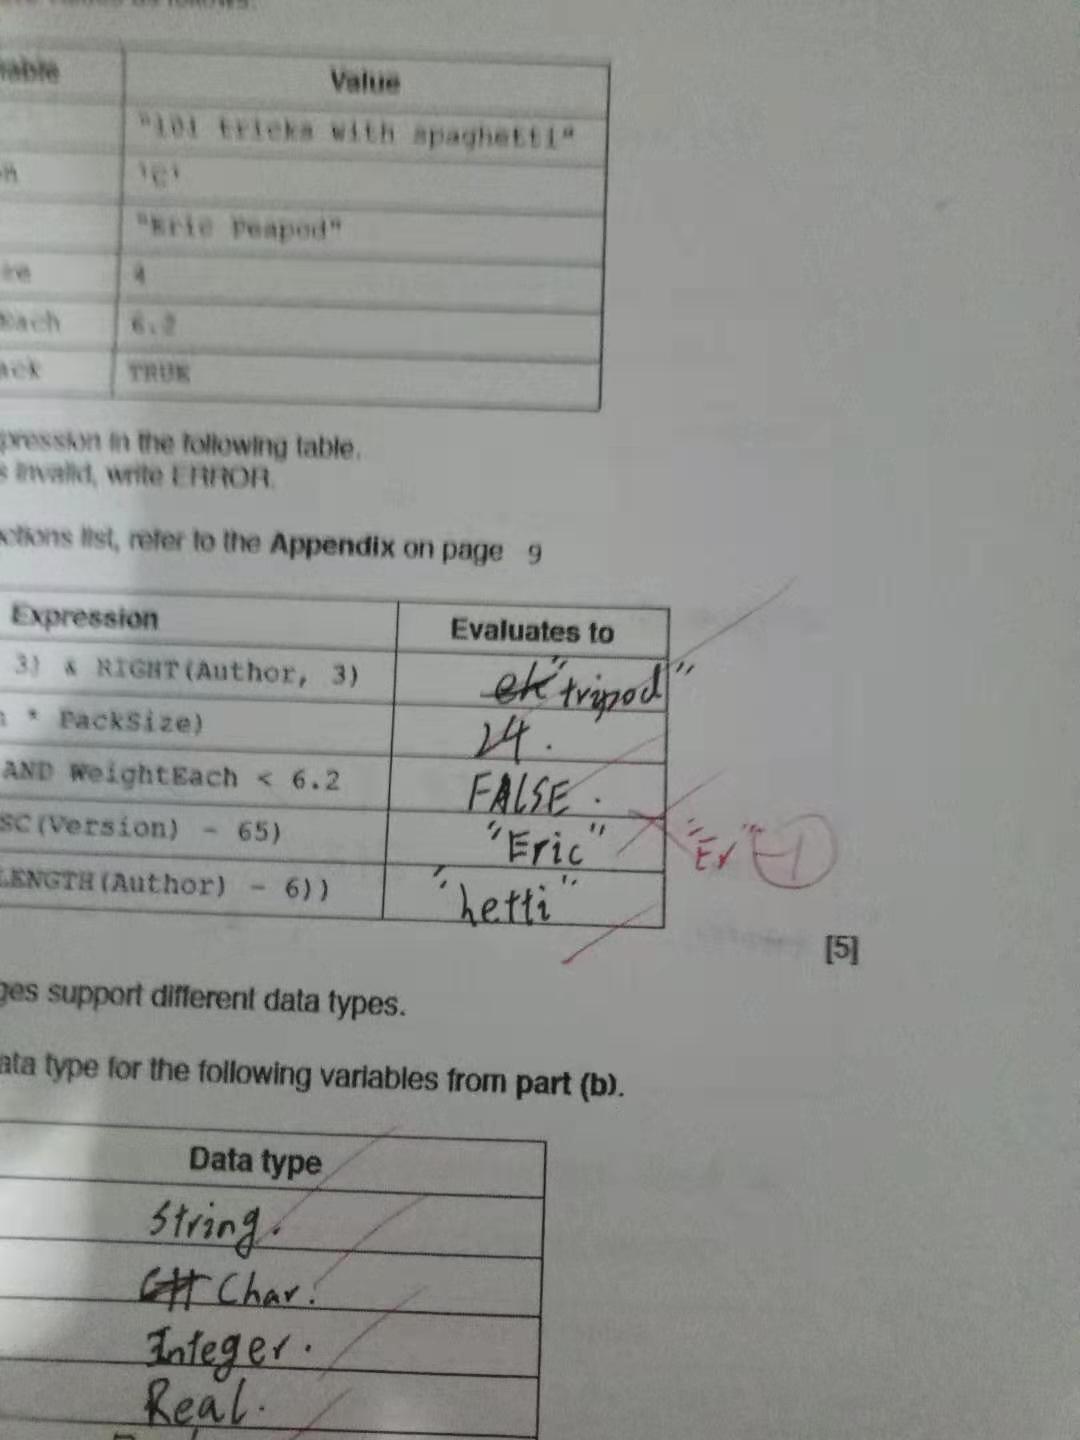 Value
"101 tricks with spaghetti"
'C'
"Eric Peapod"
4
Each 6.2
TRUE
in the following table.
invalid, write ERROR.
list, refer to the Appendix on page 9
Expression Evaluates to
3) & RIGHT(Author, 3) "tripod"
* PackSize) 24.
AND WeightEach < 6.2 FALSE.
SC(Version) - 65) "Eric" "Er" -1
LENGTH(Author) - 6)) "hetti"
[5]
ges support different data types.
ata type for the following variables from part (b).
Data type
String.
Char.
Integer.
Real.